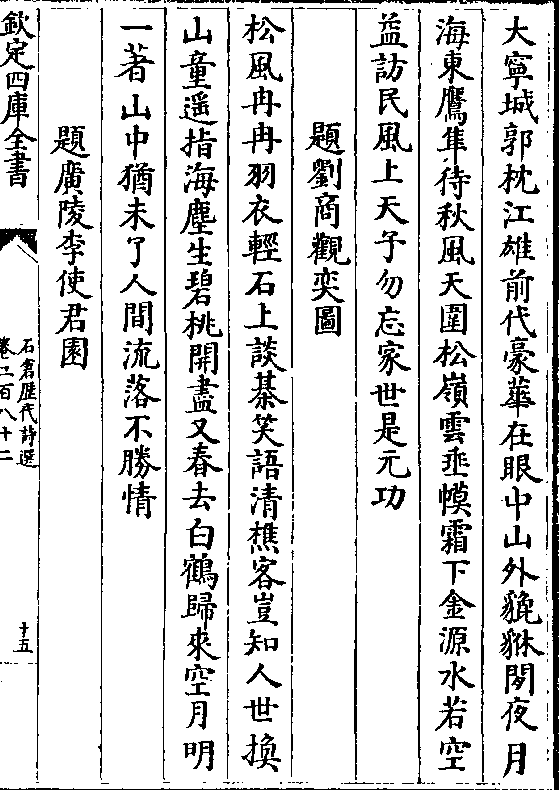 大寧城郭枕江雄前代豪華在眼中山外貔貅閑夜月
海東鷹隼待秋風天圍松嶺雲垂幙霜下金源水若空
益訪民風上天子勿忘家世是元功
題劉商觀奕圖
松風冉冉羽衣輕石上談棊笑語清樵客豈知人世換
山童遥指海塵生碧桃開盡又春去白鶴歸來空月明
一著山中猶未了人間流落不勝情
題廣陵李使君園
欽定四庫全書
石倉歷代詩選
卷二百八十二
十五